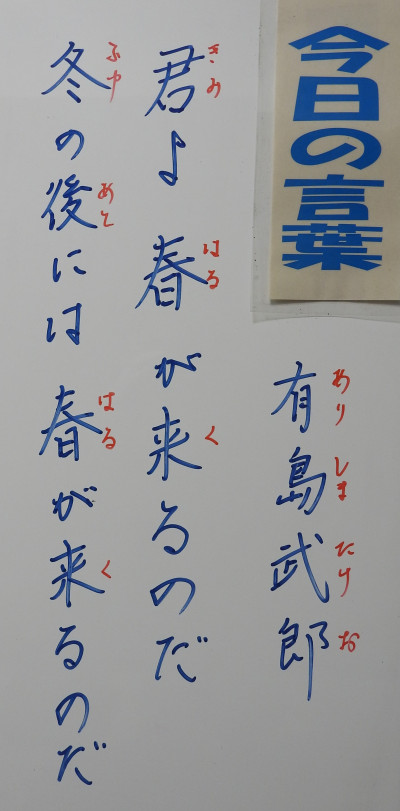 今日の言葉
有島武郎
ありしまたけお
君よ 春が来るのだ
きみ はる く
冬の後には 春が来るのだ
ふゆ あと はる く